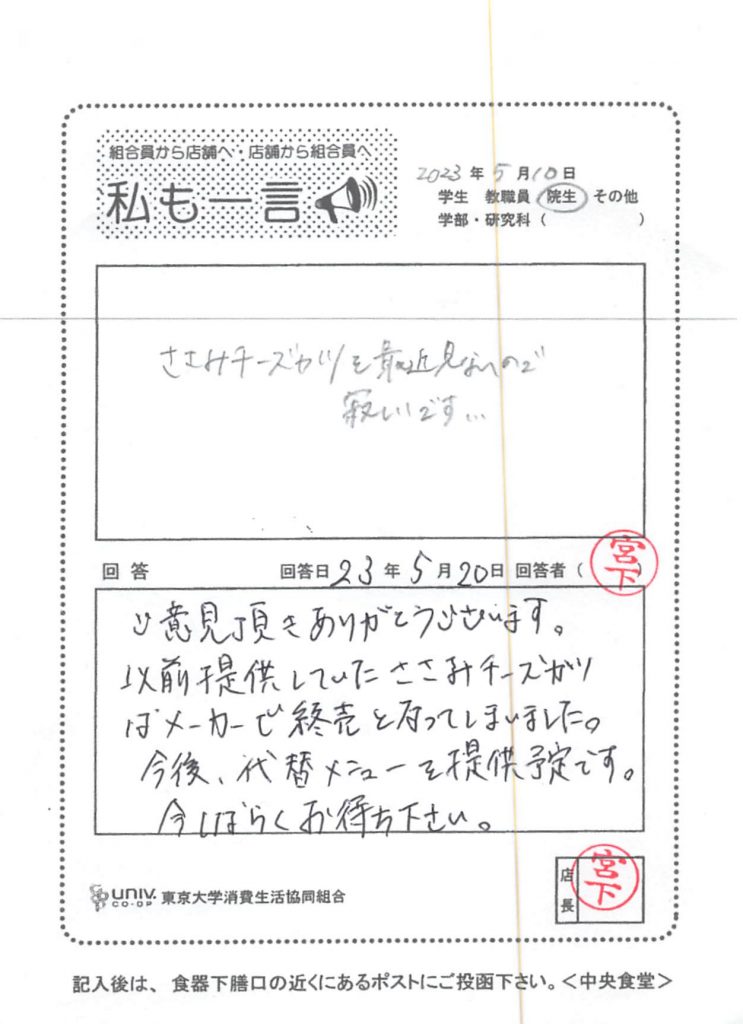 組合員から店舗へ・店舗から組合員へ
私も一言
2023年5月10日
学生 教職員 院生 その他
学部・研究科（ ）
ささみチーズカツを最近見ないので
寂しいです...
回答 回答日23年5月20日 回答者（宮下）
ご意見頂きありがとうございます。
以前提供していたささみチーズカツ
はメーカーで終売となってしまいました。
今後、代替メニューを提供予定です。
今しばらくお待ち下さい。
UNIV. CO-OP 東京大学消費生活協同組合
店長 宮下
記入後は、食器下膳口の近くにあるポストにご投函下さい。＜中央食堂＞